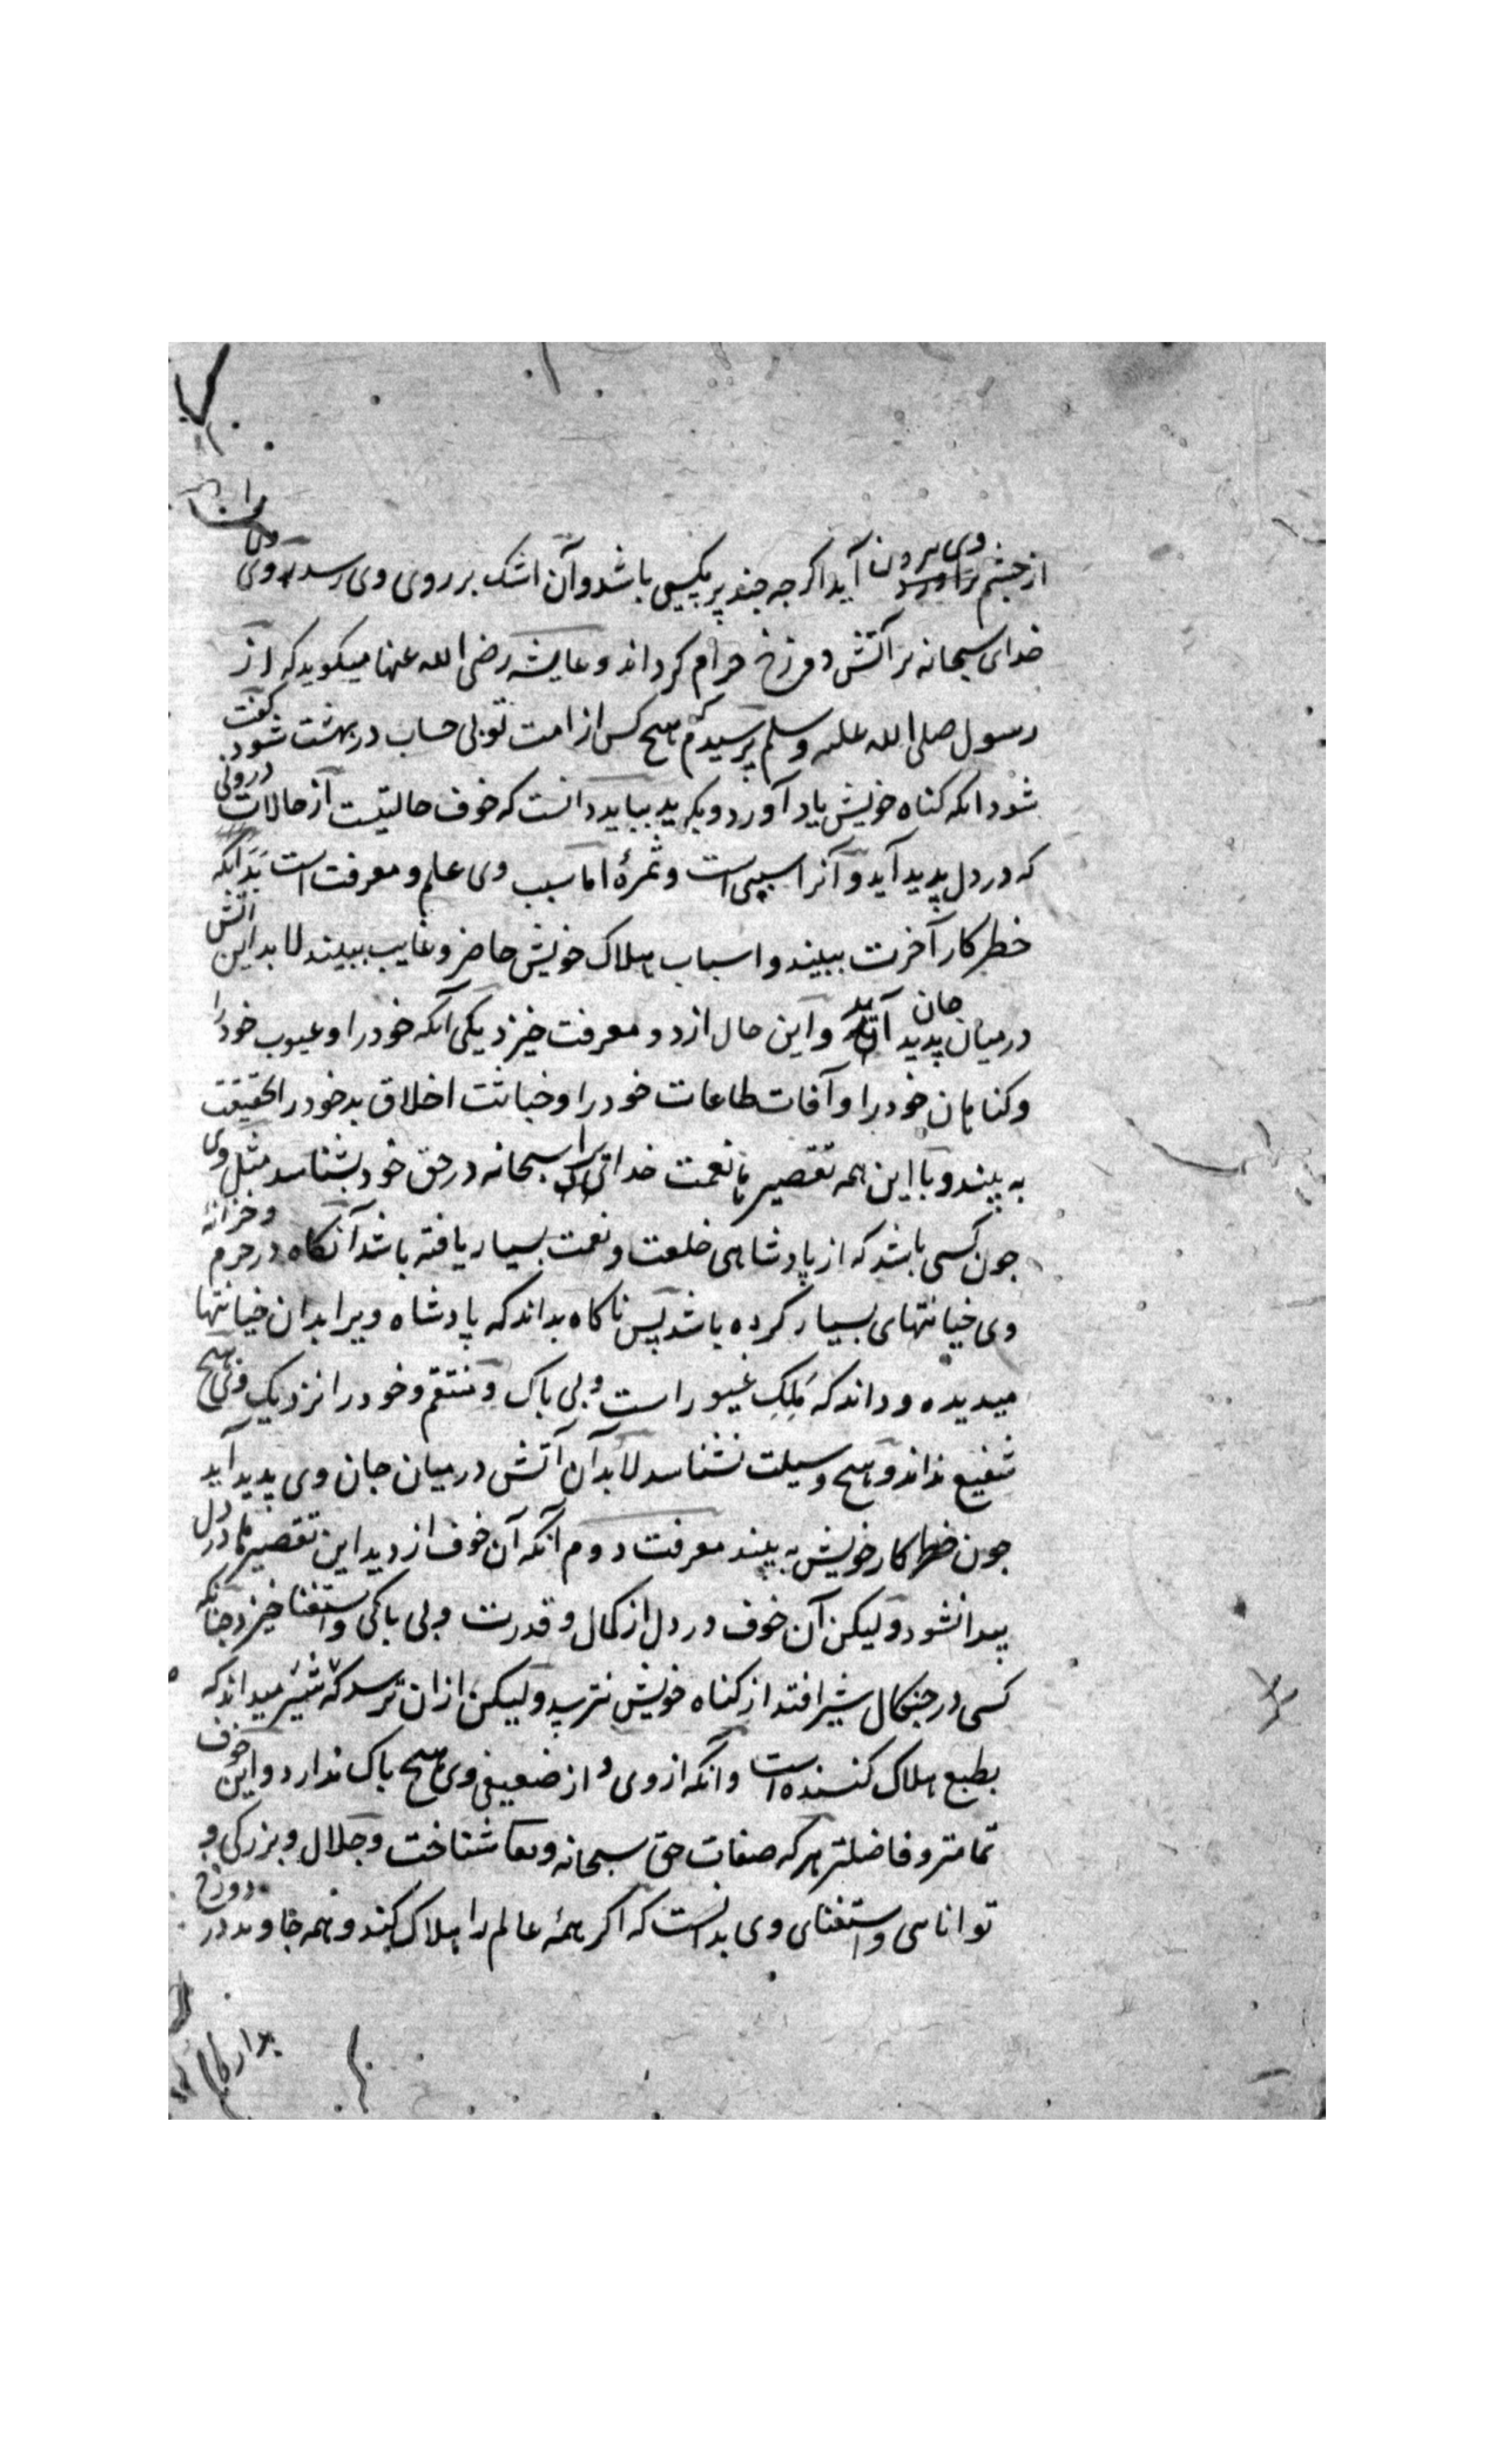 از چشم وی بیرون آید اکرجه جند پر مکسی باشد وآن اشک بر روی وی رسد روی وی
خدای سبحانه بر آتش دوزخ حرام کرداند و عایشه رضی الله عنها میکوید که از
رسول صلی الله علیه وسلم پرسیدم که هیچ کس از امت تو بی حساب در بهشت شود کفت
شود انکه کناه خویش یاد آورد و بکرید بباید دانست که خوف حالتیست از حالات درونی
که در دل پدید آید و آنرا سببی است و ثمرۀ اما سبب وی علم و معرفت است بدانکه
خطر کار آخرت ببیند و اسباب هلاک خویش حاضر و غایب ببیند لابد این اتش
در میان جان پدید آید و این حال از دو معرفت خیزد یکی آنکه خود را و عیوب خود را
و کناهان خود را و آفات طاعات خود را و خباثت اخلاق بد خود را بحقیقت
به بیند و با این همه تقصیرها نعمت خدای را سبحانه در حق خود بشناسد مثل وی
جون کسی باشد که از پادشاهی خلعت و نعمت بسیار یافته باشد آنکاه در حرم و خزانۀ
وی خیانتهای بسیار کرده باشد پس ناکاه بداند که پادشاه ویرا بدان خیانتها
میدیده و داند که مَلِک غیور است و بی باک و منتقم و خود را نزدیک وی هیچ
شفیع نداند و هیچ وسیلت نشناسد لابد آن آتش در میان جان وی پدید آید
جون خطر کار خویش به بیند معرفت دوم آنکه آن خوف از دید این تقصیرها در دل
پیدا نشود ولیکن آن خوف در دل از کمال و قدرت و بی باکی و استغنا خیزد چنانکه
کسی در جنکال شیر افتد از کناه خویش نترسد ولیکن ازان ترسد که شیر میداند که
بطبع هلاک کننده است و آنکه از وی و از ضعیفی وی هیچ باک ندارد و این خوف
تمامتر و فاضلتر هرکه صفات حق سبحانه وتعا شناخت و جلال و بزرکی و
توانایی و استغنای وی بدانست که اکر همۀ عالم را هلاک کند و همه جاوید در دوزخ
بدارد